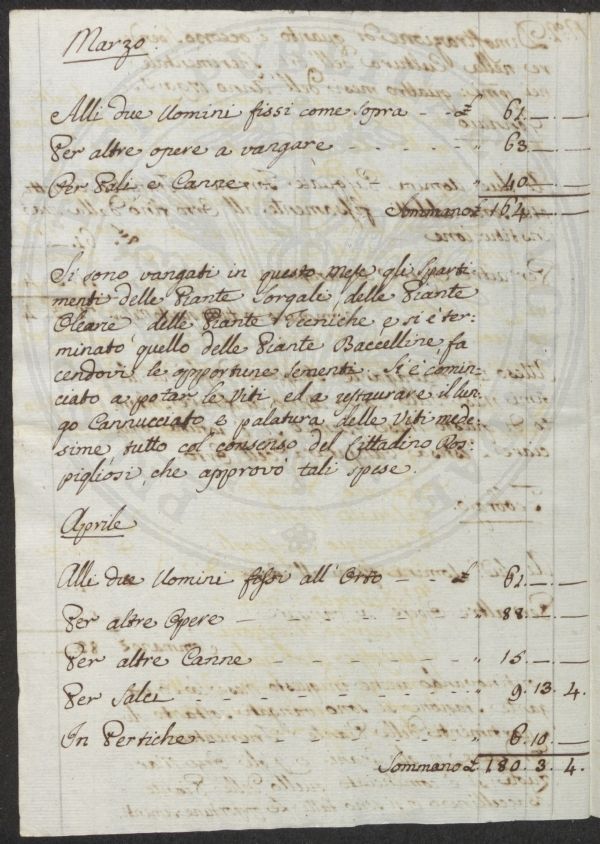 Marzo
Alli due Uomini fissi come sopra - - £ 61. — . —
Per altre opere a vangare " 63. — . —
Per Pali e Canne " 40. — . —
Sommano £ 164. — . —
Si sono vangati in questo Mese gli Sparti
menti delle Piante Sorgali, delle Piante
Olearie, delle Piante Tecniche e si è ter:
minato quello delle Piante Baccelline fa
cendovi le opportune sementi. Si è comin:
ciato a potar le Viti, ed a restaurare il lun:
go Cannucciato e palatura delle Viti mede
sime tutto col consenso del Cittadino Ros:
pigliosi, che approvò tali spese.
Aprile
Alli due Uomini fissi all' Orto - - - £ 61. — . —
Per altre Opere - - - 88. — . —
Per altre Canne - - - " 15. — . —
Per Salci - - - " 9. 13. 4.
In Pertiche - - - " 6. 10. —
Sommano £ 180. 3. 4.